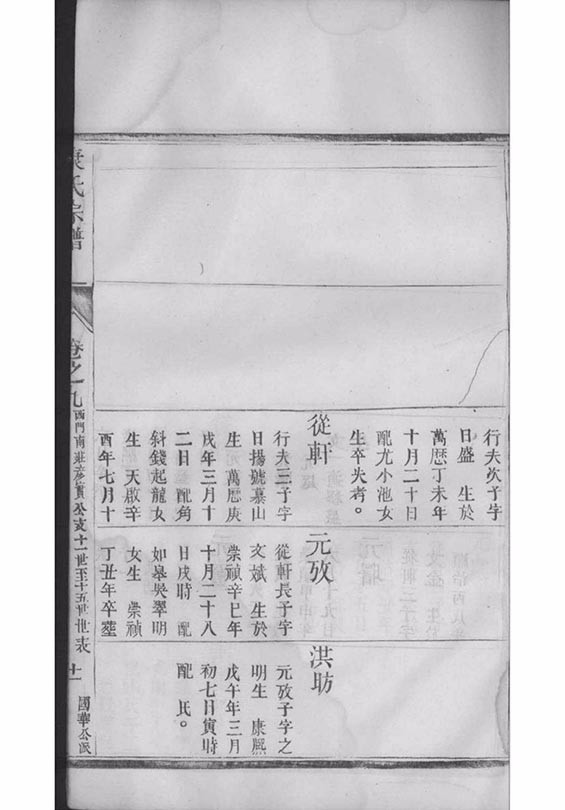 行夫次子字
日盛 生於
萬厯丁未年
十月二十日
配尤小池女
生卒失考。
從軒
行夫三子字
日揚號慕山
生 萬厯庚
戌年三月十
二日 配角
斜錢起龍女
生 天啟辛
酉年七月十
元攷
從軒長子字
文斌 生於
崇禎辛巳年
十月二十八
日戌時 配
如皋吳翠明
女生 崇禎
丁丑年卒葬
洪昉
元攷子字之
明生 康熙
戊午年三月
初七日寅時
配 氏。
袁氏宗譜
卷之九
西門南莊彥質公支十一世至十五世世表
十一
國華公派